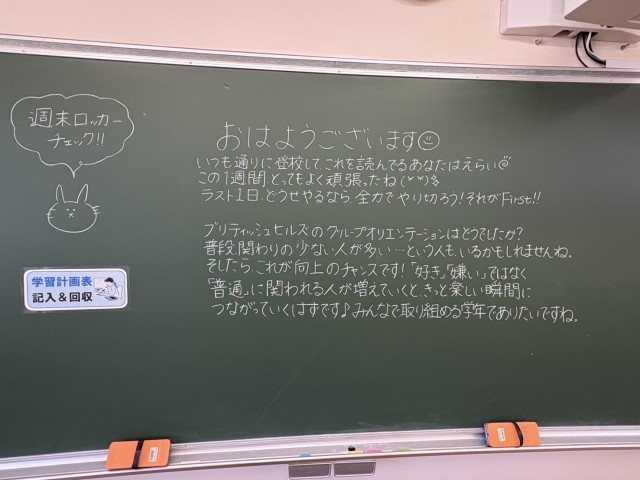 週末ロッカー
チェック!!
学習計画表
記入＆回収
おはようございます
いつも通りに登校してこれを読んでるあなたはえらい
この1週間、とってもよく頑張ったね
ラスト1日、どうせやるなら、全力でやり切ろう!それがFirst!!
ブリティッシュヒルズのグループオリエンテーションはどうでしたか?
普段、関わりの少ない人が多い…という人も、いるかもしれませんね。
そしたら、これが向上のチャンスです!「好き」「嫌い」ではなく
「普通」に関われる人が増えていくと、きっと楽しい瞬間に
つながっていくはずです♪みんなで取り組める学年でありたいですね。